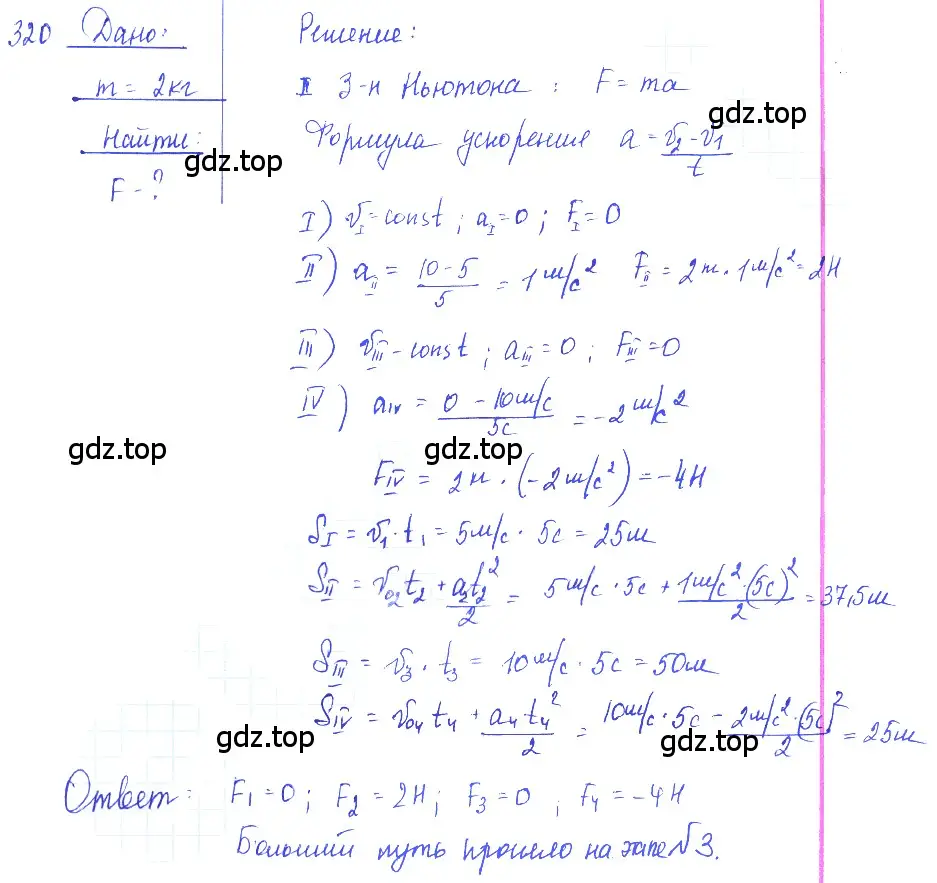 320 Дано: Решение:
m = 2кг II З-н Ньютона: F = ma
gdz.top
Найти: Формула ускорения a = (v₂ - v₁)/t
gdz.top
F - ?
I) v_I = const; a_I = 0; F_I = 0
II) a_II = (10 - 5)/5 = 1 м/с² F_II = 2 кг · 1 м/с² = 2Н
III) v_III - const; a_III = 0; F_III = 0
IV) a_IV = (0 - 10 м/с)/5с = -2 м/с²
gdz.top gdz.top
F_IV = 2 кг · (-2 м/с²) = -4Н
S_I = v₁ · t₁ = 5 м/с · 5с = 25 м
S_II = v₀₂t₂ + a₂t₂²/2 = 5 м/с · 5с + 1 м/с² · (5с)²/2 = 37,5 м
S_III = v₃ · t₃ = 10 м/с · 5с = 50 м
S_IV = v₀₄t₄ + a₄t₄²/2 = 10 м/с · 5с - 2 м/с² · (5с)²/2 = 25 м
gdz.top gdz.top
Ответ: F₁ = 0; F₂ = 2Н; F₃ = 0; F₄ = -4Н
Больший путь прошло на этапе №3.